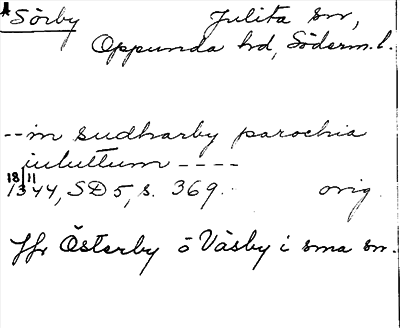 Sörby Julita sn,
Oppunda hd, Söderm.l.
-- in sudharby parochia
iulittum ----
18/11
1344, SD 5, s. 369. orig.
Jfr Österby o Väsby i sma sn.